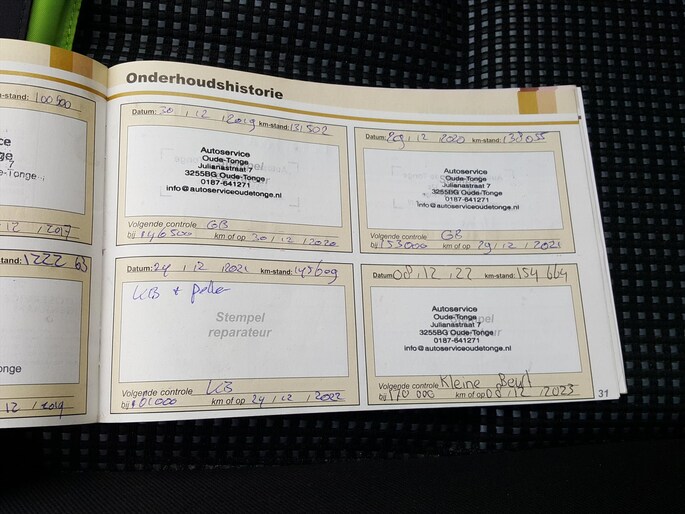 Onderhoudshistorie
km-stand: 100500
Tonge
7
e-Tonge
12 / 2017
stand: 122263
onge
12 / 2019
Datum: 30 / 12 / 2019 km-stand: 131502
Autoservice
Oude-Tonge
Julianastraat 7
3255BG Oude-Tonge
0187-641271
info@autoserviceoudetonge.nl
Volgende controle GB
bij 146500 km of op 30 / 12 / 2020
Datum: 29 / 12 2020 km-stand: 138035
Autoservice
Oude-Tonge
Julianastraat 7
3255BG Oude-Tonge
0187-641271
info@autoserviceoudetonge.nl
Volgende controle GB
bij 153000 km of op 29 / 12 / 2021
Datum: 24 / 12 2021 km-stand: 145609
KB +
Stempel
reparateur
Volgende controle KB
bij km of op 24 / 12 / 2022
Datum 08 / 12 / 22 km-stand: 154664
Autoservice
Oude-Tonge
Julianastraat 7
3255BG Oude-Tonge
0187-641271
info@autoserviceoudetonge.nl
Volgende controle Kleine Beurt
bij 170 000 km of op 08 / 12 / 2023
31